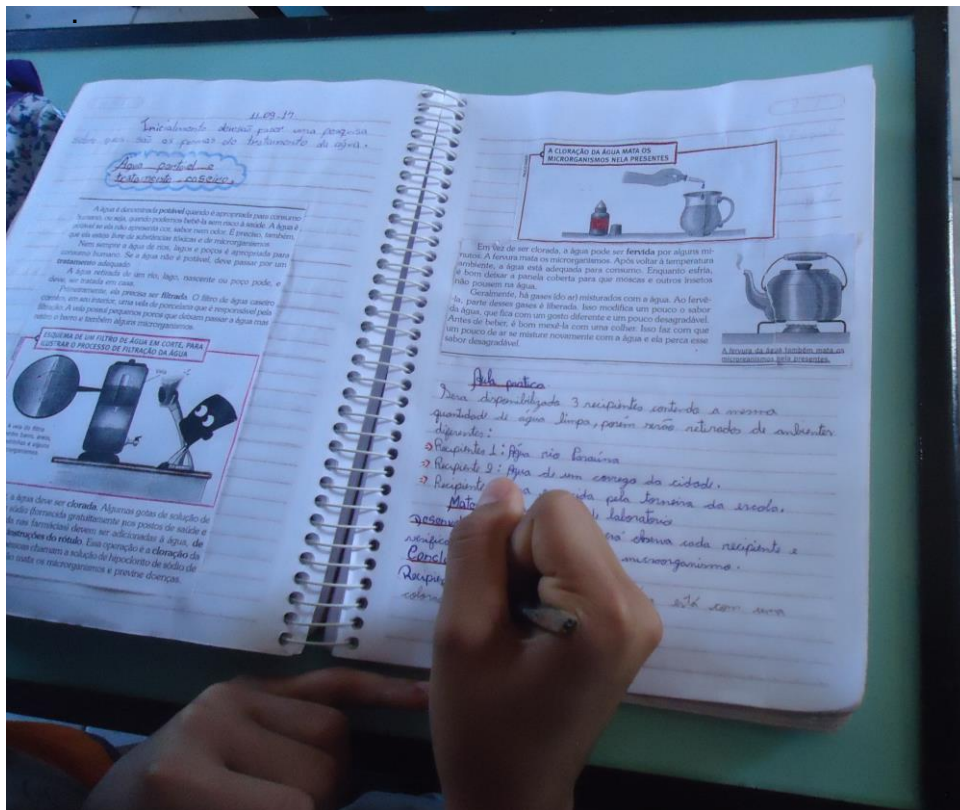 11-09-17
Inicialmente fazer uma pesquisa
sobre quais são as formas do tratamento da água.
Água potável e
tratamento caseiro.
A água é denominada potável quando é apropriada para consumo
humano, ou seja, quando podemos bebê-la sem risco à saúde. A água é
potável se ela não apresenta cor, sabor nem odor. É preciso, também,
que ela esteja livre de substâncias tóxicas e de microrganismos
Nem sempre a água de rios, lagos e poços é apropriada para
consumo humano. Se a água não é potável, deve passar por um
tratamento adequado.
A água retirada de um rio, lago, nascente ou poço pode, e
deve, ser tratada em casa.
Primeiramente, ela precisa ser filtrada. O filtro de água caseiro
contém, em seu interior, uma vela de porcelana que é responsável pela
filtração. A vela possui pequenos poros que deixam passar a água mas
retêm o barro e também alguns microrganismos.
ESQUEMA DE UM FILTRO DE ÁGUA EM CORTE, PARA
ILUSTRAR O PROCESSO DE FILTRAÇÃO DA ÁGUA
Vela
A vela do filtro
retém barro, areia,
e alguns
microrganismos.
a água deve ser clorada. Algumas gotas de solução de
de sódio (fornecida gratuitamente nos postos de saúde e
nas farmácias) devem ser adicionadas à água, de
instruções do rótulo. Essa operação é a cloração da
pessoas chamam a solução de hipoclorito de sódio de
mata os microrganismos e previne doenças.
A CLORAÇÃO DA ÁGUA MATA OS
MICRORGANISMOS NELA PRESENTES
Em vez de ser clorada, a água pode ser fervida por alguns mi-
nutos. A fervura mata os microrganismos. Após voltar à temperatura
ambiente, a água está adequada para consumo. Enquanto esfria,
é bom deixar a panela coberta para que moscas e outros insetos
não pousem na água.
Geralmente, há gases (do ar) misturados com a água. Ao fervê-
la, parte desses gases é liberada. Isso modifica um pouco o sabor
da água, que fica com um gosto diferente e um pouco desagradável.
Antes de beber, é bom mexê-la com uma colher. Isso faz com que
um pouco de ar se misture novamente com a água e ela perca esse
sabor desagradável.
A fervura da água também mata os
microrganismos nela presentes.
Aula pratica
Sera disponibilizado 3 recipientes contendo a mesma
quantidade de água limpa, porem serão retirados de ambientes
diferentes:
Recipientes 1: Água rio Paraúna
Recipiente 2: Água de um corrego da cidade.
Recipiente pela torneira da escola.
Mate de laboratorio
Desenvo cada recipiente e
verifica microorganismo.
Conclu
Recipien está com uma
colora